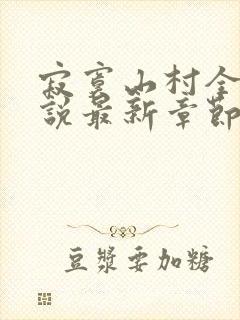 寂寞山村全
說最新章節
豆漿要加糖